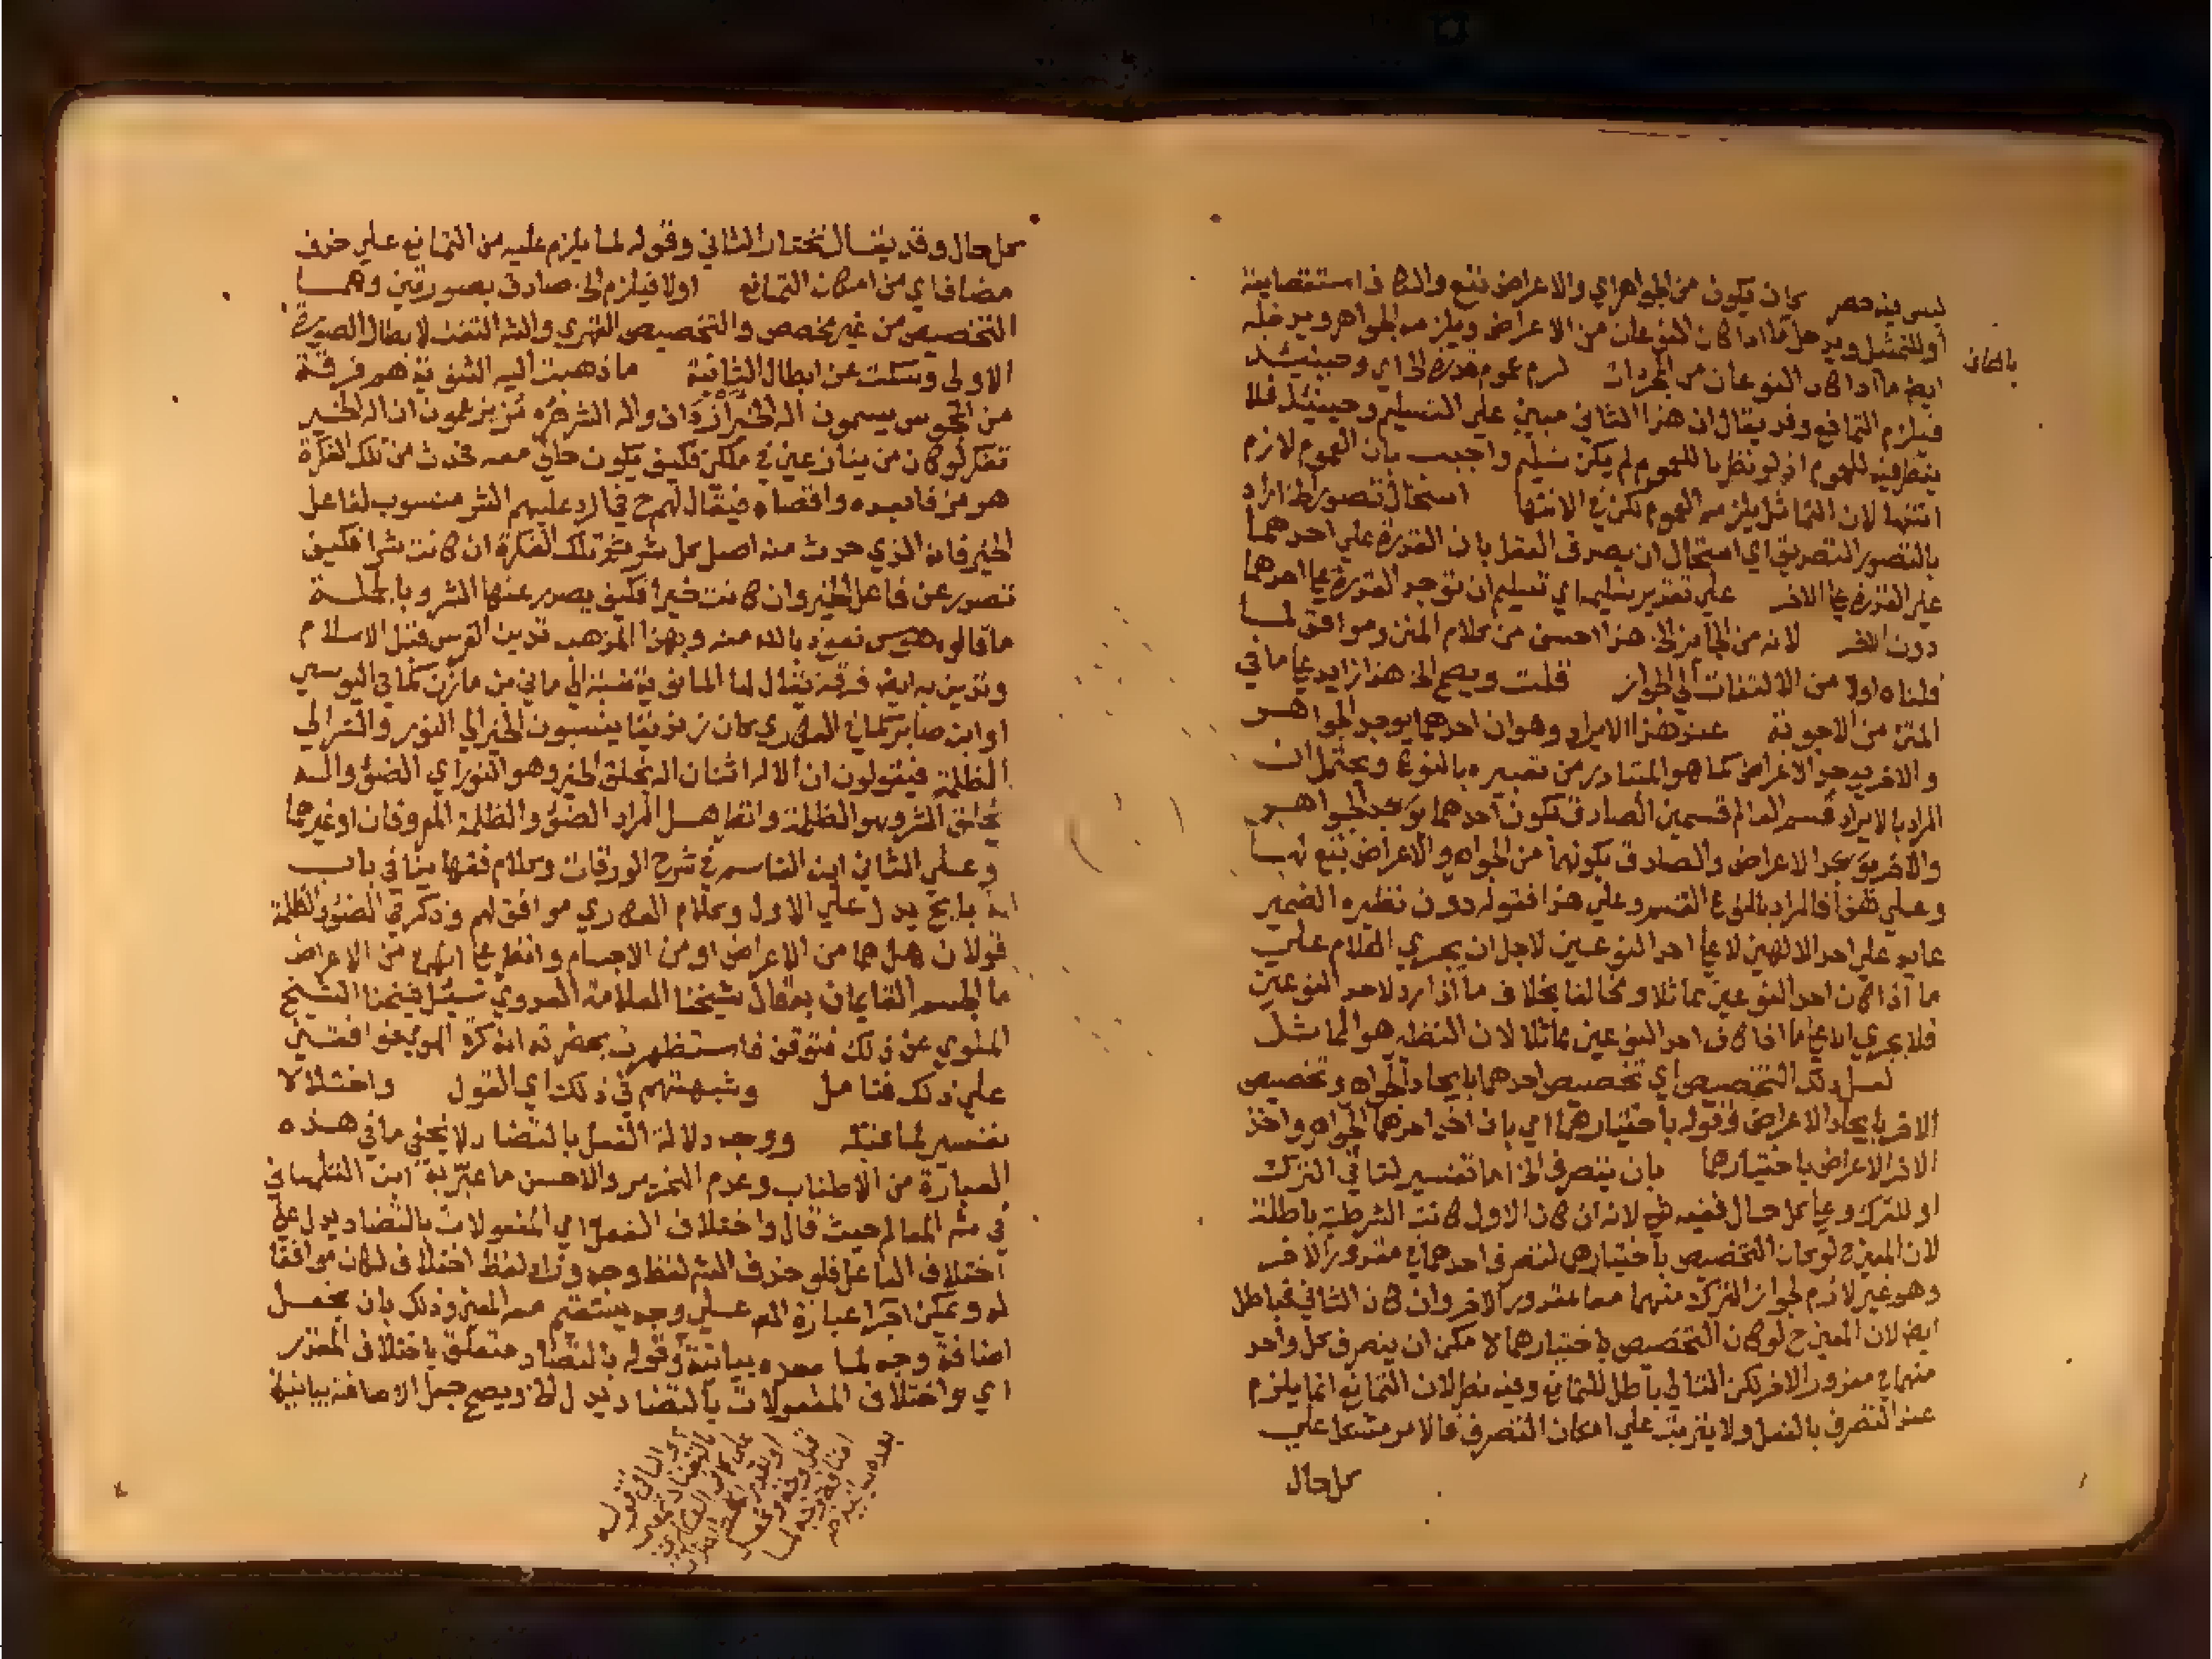 ليس بينه حصر كان يكون من الجواهر اي والاعراض تتبع والكاف استقصائية
او للتمثيل ويدخل ما اذا كان النوعان من الاعراض ويلزمه الجواهر ويدخله
بالمعاني
ايضا ما اذا كان النوعان من المجردات لزم عموم قدرة الخ اي وحينئذ
فيلزم التمانع وقد يقال ان هذا الثاني مبني علي التسليم وحينئذ فلا
ينظر فيه للعموم اذ لو نظرنا للعموم لم يكن تسليم واجيب بان العموم لازم
انتهي لان التماثل يلزمه العموم لكن في الانتها استحال تصور الخ اراد
بالتصور التصديق اي استحال ان يصدق العقل بان القدرة علي احدهما
غير القدرة علي الاخر علي تقدير تسليمه اي تسليم ان توجد القدرة علي احدهما
دون الاخر لانه من الجائز الخ هذا احسن من كلام المتن وموافق لما
قلناه اولا من الالتفات الي الجواز قلت ويصح الخ هذا زايد علي ما في
المتن من الاجوبة عند هذا الايراد وهو ان احدهما يوجد الجواهر
والاخر يوجد الاعراض كما هو المتبادر من تعبيره بالنوع ويحتمل ان
المراد بالايراد قسم العالم قسمين الصادق بكون احدهما يوجد الجواهر
والاخر يوجد الاعراض والصادق بكونهما من الجواهر والاعراض تتبع لها
وعلي هذا فالمراد بالنوع القسم وعلي هذا فقوله دون نظيره الضمير
عايد علي احد الالهين لا علي احد النوعين لاجل ان يجري الكلام علي
ما اذا كان احد النوعين مماثلا ومخالفا بخلاف ما اذا رد لاحد النوعين
فلا يجري الا علي ما اذا كان احد النوعين مماثلا لان النظير هو المماثل
لعل ذلك التخصيص اي تخصيص احدهما بايجاد الجواهر وتخصيص
الاخر بايجاد الاعراض وقوله باختيارهما اي بان اختار احدهما الجواهر واخذ
الاخر الاعراض باختيارهما بان يتصرف الخ اما تفسير لتاتي الترك
او للترك وعلي كل حال ففيه شي لانه ان كان الاول كانت الشرطية باطلة
لان المعني ح لو كان التخصيص باختيارهما لتصرف احدهما في مقدور الاخر
وهو غير لازم لجواز الترك منهما معا مقدور الاخر وان كان الثاني فباطل
ايضا لان المعني ح لو كان التخصيص باختيارهما لامكن ان يتصرف كل واحد
منهما في مقدور الاخر لكن التالي باطل للتمانع وفيه نظر لان التمانع انما يلزم
عند التصرف بالفعل ولا يترتب علي امكان التصرف فالامر مشكل علي
كل حال
كل حال وقد يقال نختار الثاني وقوله لما يلزم عليه من التمانع علي حذف
مضاف اي من امكان التمانع اولا فيلزم الخ صادق بصورتين وهما
التخصيص من غير مخصص والتخصيص القهري والشه التفت لابطال الصورة
الاولي وسكت عن ابطال الثانية ما ذهبت اليه الثنوية هم فرقة
من المجوس يسمون اله الخير ازدان واله الشر هرمز يزعمون ان اله الخير
تفكر لو كان من ينازعني في ملكي فكيف يكون حالي معه فحدث من تلك الفكرة
هرمز فابعده واقصاه فيقال لهم ح في الرد عليهم الشر منسوب لفاعل
الخير فانه الذي حدث منه اصل كل شر ثم تلك الفكرة ان كانت شرا فكيف
تصور عن فاعل الخير وان كانت خيرا فكيف يصدر عنها الشر وبالجملة
ما قالوه هوس نعوذ بالله منه وبهذا المذهب تدين الفرس قبل الاسلام
وتدين به ايضا فرقة يقال لها المانوية نسبة الي ماني بن مازن كما في اليوسي
او ابن صابر كما في السكاري كان زنديقا ينسبون الخير الي النور والشر الي
الظلمة فيقولون ان الاله اثنان اله يخلق الخير وهو النور اي الضوء واله
يخلق الشر وهو الظلمة وانظر هل المراد الضوء والظلمة المعروفان او غيرهما
وعلي الثاني ابن القاسم في شرح الورقات وكلام فقهائنا في باب
يدل علي الاول وكلام السكاري موافق لهم وذكر في الضوء والظلمة
قولان هل هما من الاعراض او من الاجسام وانظر علي انهما من الاعراض
ما الجسم القايمان به قال شيخنا العلامة العدوي سئل شيخنا الشيخ
الملوي عن ذلك فتوقف فاستظهرت بحضرته انه كرة الهوي فوافقني
علي ذلك فتامل وشبهتهم في ذلك اي القول واختلالا
تفسير لما قبله ووجه دلالة الفعل بالتضاد لا يخفي ما في هذه
العبارة من الاطناب وعدم التحرير والاحسن ما عبر به ابن التلمساني
في شرح المعالم حيث قال واختلاف الفعل اي المفعولات بالتضاد يدل علي
اختلاف الفاعل فلو حذف الشه لفظ وجه وترك لفظ اختلاف لكان موافقا
له ويمكن اجرا عبارة المص علي وجه يستقيم معه المعني وذلك بان يجعل
اضافة وجه لما بعده بيانية وقوله بالتضاد متعلق باختلاف المقدر
اي واختلاف المفعولات بالتضاد يدل الخ ويصح جعل الاضافة بيانية